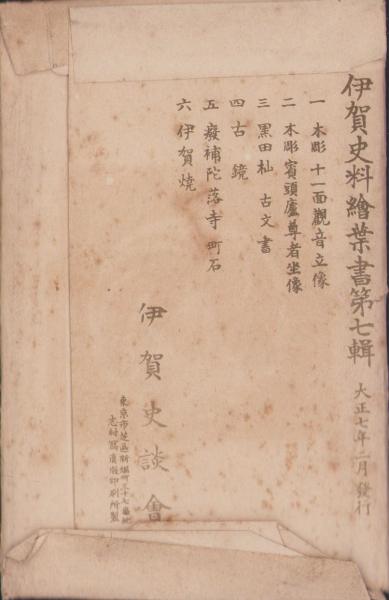 伊賀史料繪葉書第七輯 大正七年二月發行
一 木彫十一面觀音立像
二 木彫賓頭盧尊者坐像
三 黒田杣 古文書
四 古鏡
五 癈補陀落寺町石
六 伊賀燒
伊賀史談會
東京市芝區新堀町三十七番地
志村寫眞版印刷所製